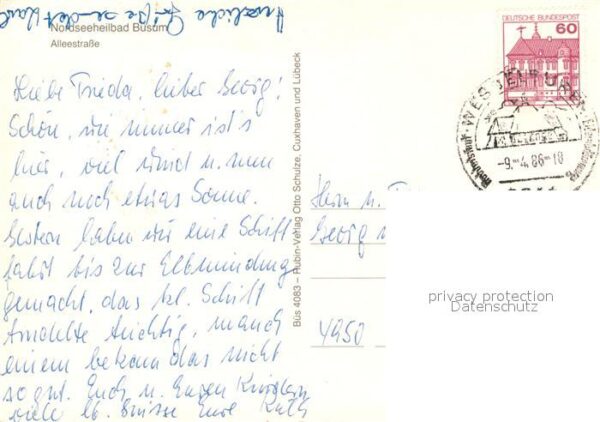 Herzliche Grüße sendet
Nordseeheilbad Büsum
Alleestraße
Liebe Frieda, lieber Georg!
Schön, wie immer ist's
hier, viel Wind u. nun
auch noch etwas Sonne.
Gestern haben wir eine Schiff
fahrt bis zur Elbmündung
gemacht, das kl. Schiff
tüchtig, manch
einem bekam das nicht
so gut. Euch u. Euren Kindern
viele lb. Grüsse Eure Käth
Büs 4083 – Rubin-Verlag Otto Schulze, Cuxhaven und Lübeck
DEUTSCHE BUNDESPOST
60
-9.-4.86-18
Herrn u. F
Georg
4950
privacy protection
Datenschutz